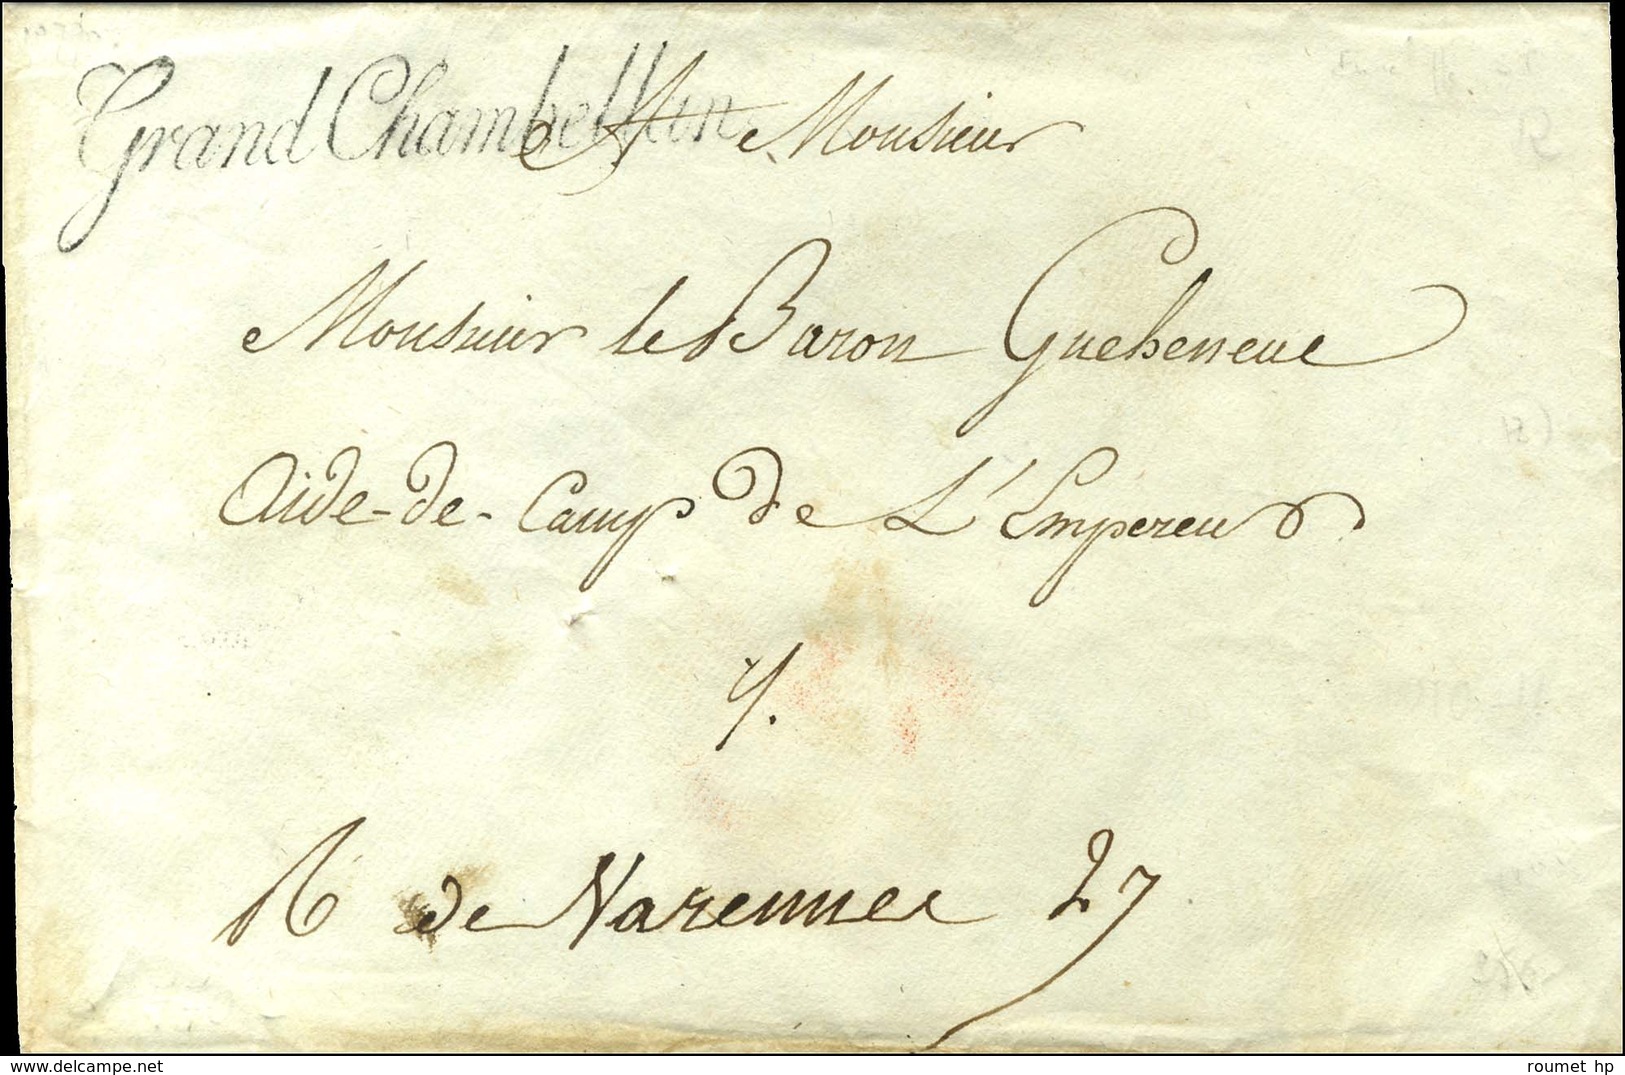 Grand Chambellan
A Monsieur
Monsieur le Baron Gueheneuc
Aide-de-Camp de L'Empereur
R de Varennes 27
delcampe.net
roumet hp